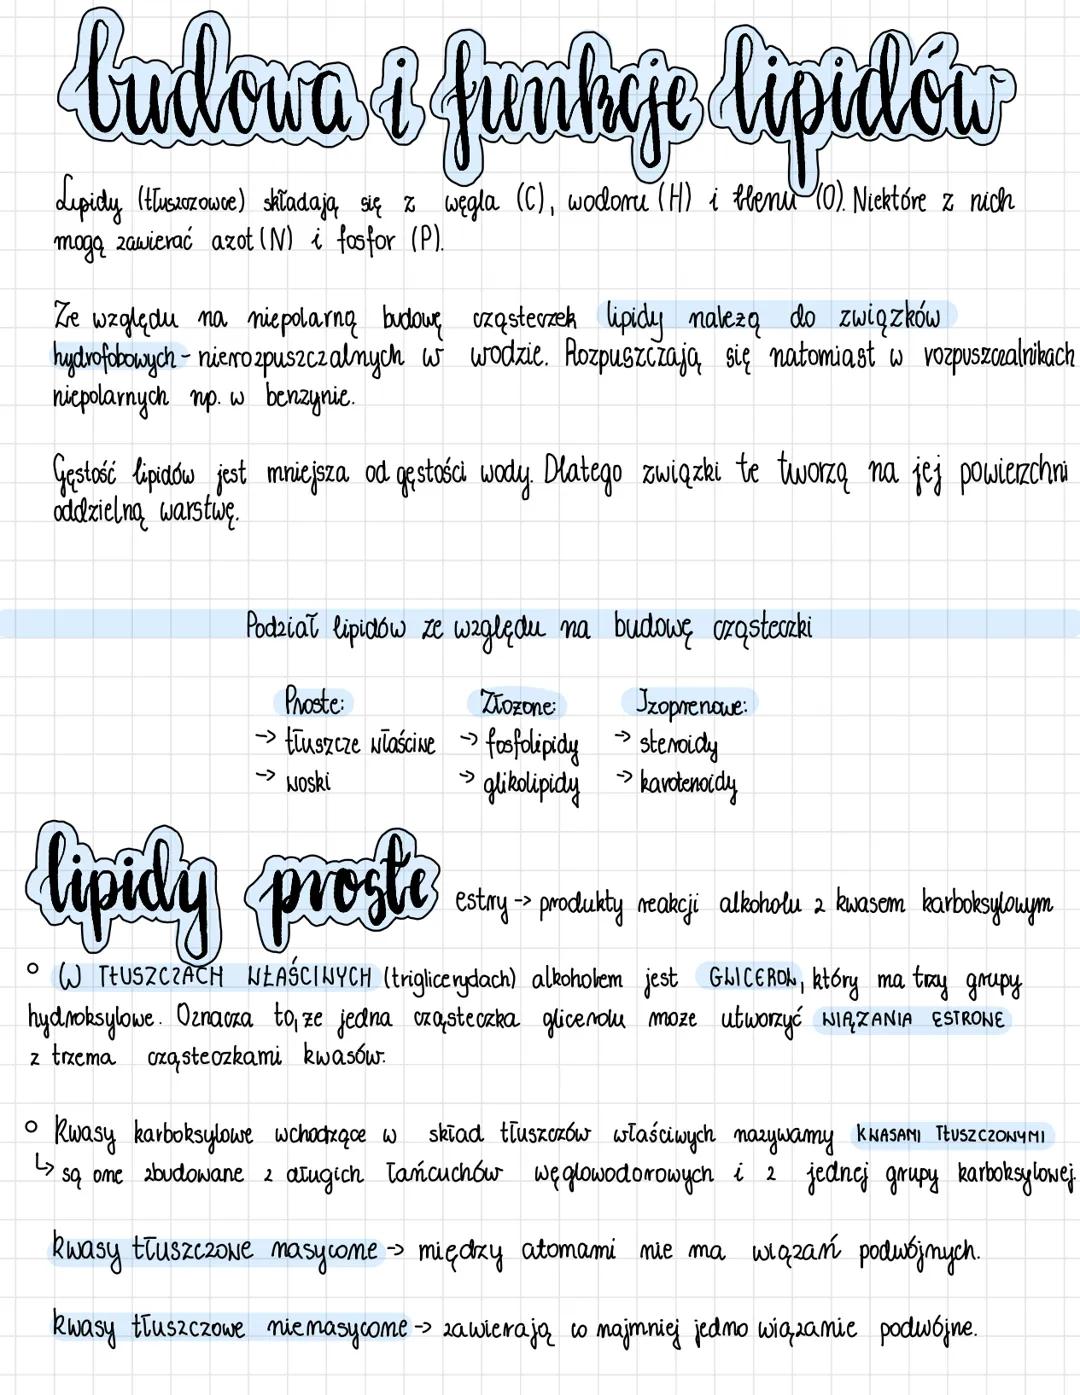 budowa i funkcje lipidów
Lipidy (tłuszczowce) składają się z węgla (C), wodoru (H) i tlenu (O). Niektóre z nich
mogą zawierać azot (N) i fosfor (P).
Ze względu na niepolarną budowę cząsteczek lipidy należą do związków
hydrofobowych - nierozpuszczalnych w wodzie. Rozpuszczają się natomiast w rozpuszczalnikach
niepolarnych np. w benzynie.
Gęstość lipidów jest mniejsza od gęstości wody. Dlatego związki te tworzą na jej powierzchni
oddzielną warstwę.
Podział lipidów ze względu na budowę cząsteczki
Proste: Złożone: Izoprenowe:
-> tłuszcze właściwe -> fosfolipidy -> steroidy
-> woski -> glikolipidy -> karotenoidy
lipidy proste estry -> produkty reakcji alkoholu z kwasem karboksylowym
◦ W TŁUSZCZACH WŁAŚCIWYCH (triglicerydach) alkoholem jest GLICEROL, który ma trzy grupy
hydroksylowe. Oznacza to, że jedna cząsteczka glicerolu może utworzyć WIĄZANIA ESTROWE
z trzema cząsteczkami kwasów.
◦ Kwasy karboksylowe wchodzące w skład tłuszczów właściwych nazywamy KWASAMI TŁUSZCZOWYMI
↳ są one zbudowane z długich łańcuchów węglowodorowych i z jednej grupy karboksylowej.
kwasy tłuszczowe nasycone -> między atomami nie ma wiązań podwójnych.
kwasy tłuszczowe nienasycone -> zawierają co najmniej jedno wiązanie podwójne.